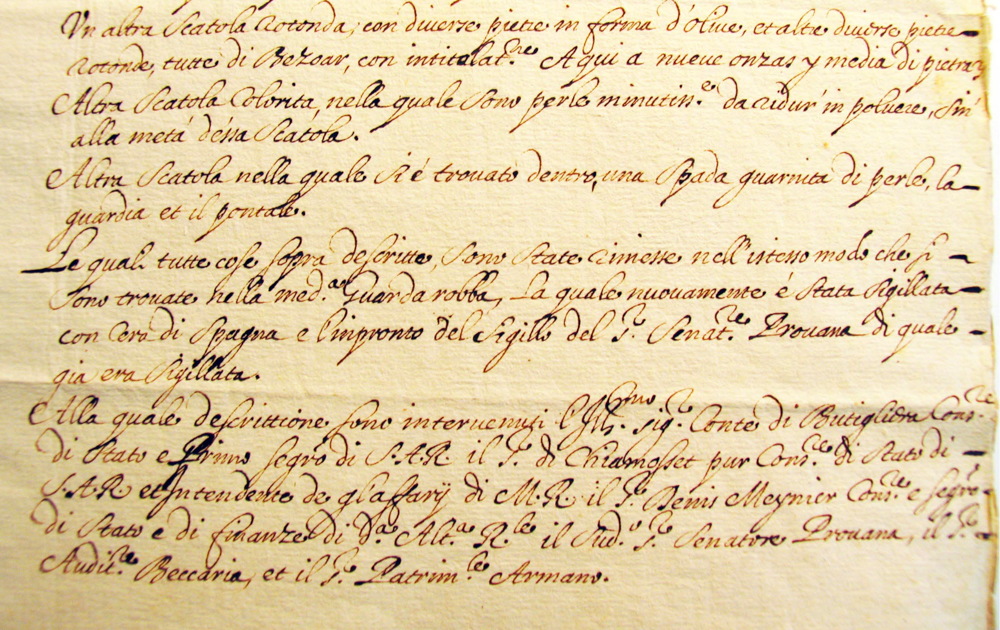 Un altra Scatola rotonda, con diverse pietre in forma d'olive, et altre diverse pietre
rotonde, tutte di Bezoar, con intitolat.ne Aqui a nueve onzas y media di pietra
Altra Scatola Colorita, nella quale sono perle minutiss.e da ridur' in polvere, sin'
alla metá d'essa Scátola.
Altra Scatola nella quale si é trovato dentro, una Spada guarnita di perle, la
guardia et il pontale.
Le quali tutte cose sopra descritte, sono State rimesse nell'istesso modo che si
sono trovate nella med.a Guardarobba, La quale nuovamente é Stata Sigillata
con Cera di Spagna e l'impronto del Sigillo del S.r Senat.re Provana di quale
gia era Sigillata.
Alla quale descrittione sono intervenuti l'Ill.mo Sig.r Conte di Butigliera Cons.re
di Stato e Primo segro di S.A.R. il S.r di Chiamosset pur Cons.re di Stato di
S.A.R et Intendente de gl'affary di M.R. il S.r Denis Meynier Cons.re e segro
di Stato e di finanze di d.a Alt.a R.le il Sud.o S.r Senatore Provana, il S.r
Audit.re Beccaria, et il S.r Patrim.le Armano.